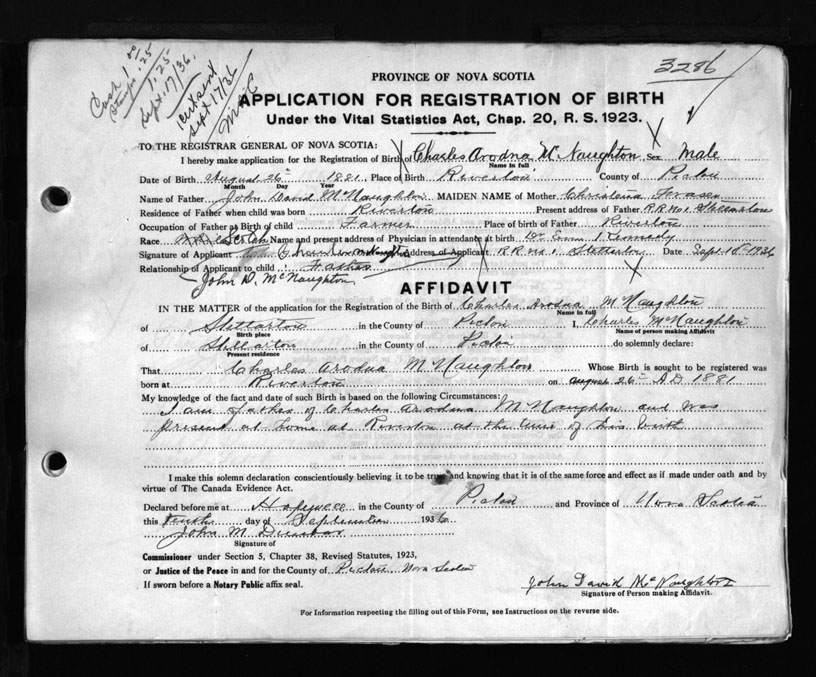 Cash 1.00
Stamps .25
1.25
Sept. 17/36.
Cert. sent
Sept 17/36
3286
PROVINCE OF NOVA SCOTIA
APPLICATION FOR REGISTRATION OF BIRTH
Under the Vital Statistics Act, Chap. 20, R. S. 1923.
TO THE REGISTRAR GENERAL OF NOVA SCOTIA:
I hereby make application for the Registration of Birth of Charles Arodna McNaughton Sex Male
Name in full
Date of Birth August 26th 1881 Place of Birth Riverton County of Pictou
Month Day Year
Name of Father John David McNaughton MAIDEN NAME of Mother Christena Fraser
Residence of Father when child was born Riverton Present address of Father R.R. No 1 Stellarton
Occupation of Father at Birth of child Farmer Place of Birth of Father Riverton
Race Scotch Name and present address of Physician in attendance at birth Dr. Kennedy
Signature of Applicant Charles McNaughton Address of Applicant R.R. No. 1 Stellarton Date Sept 10th 1936
Relationship of Applicant to child Father
John D. McNaughton
AFFIDAVIT
IN THE MATTER of the application for the Registration of the Birth of Charles Arodna McNaughton
Name in full
of Stellarton in the County of Pictou I, Charles McNaughton
Birth place Name of person making Affidavit
of Stellarton in the County of Pictou do solemnly declare:
Present residence
That Charles Arodna McNaughton Whose Birth is sought to be registered was
born at Riverton on August 26th A.D. 1881
My knowledge of the fact and date of such Birth is based on the following Circumstances:
I am Father of Charles Arodna McNaughton and was
present at home at Riverton at the time of his birth
I make this solemn declaration conscientiously believing it to be true and knowing that it is of the same force and effect as if made under oath and by
virtue of The Canada Evidence Act.
Declared before me at Hopewell in the County of Pictou and Province of Nova Scotia
this tenth day of September 1936
John M Dunbar
Signature of
Commissioner under Section 5, Chapter 38, Revised Statutes, 1923,
or Justice of the Peace in and for the County of Pictou Nova Scotia
If sworn before a Notary Public affix seal.
John David McNaughton
Signature of Person making Affidavit.
For Information respecting the filling out of this Form, see Instructions on the reverse side.